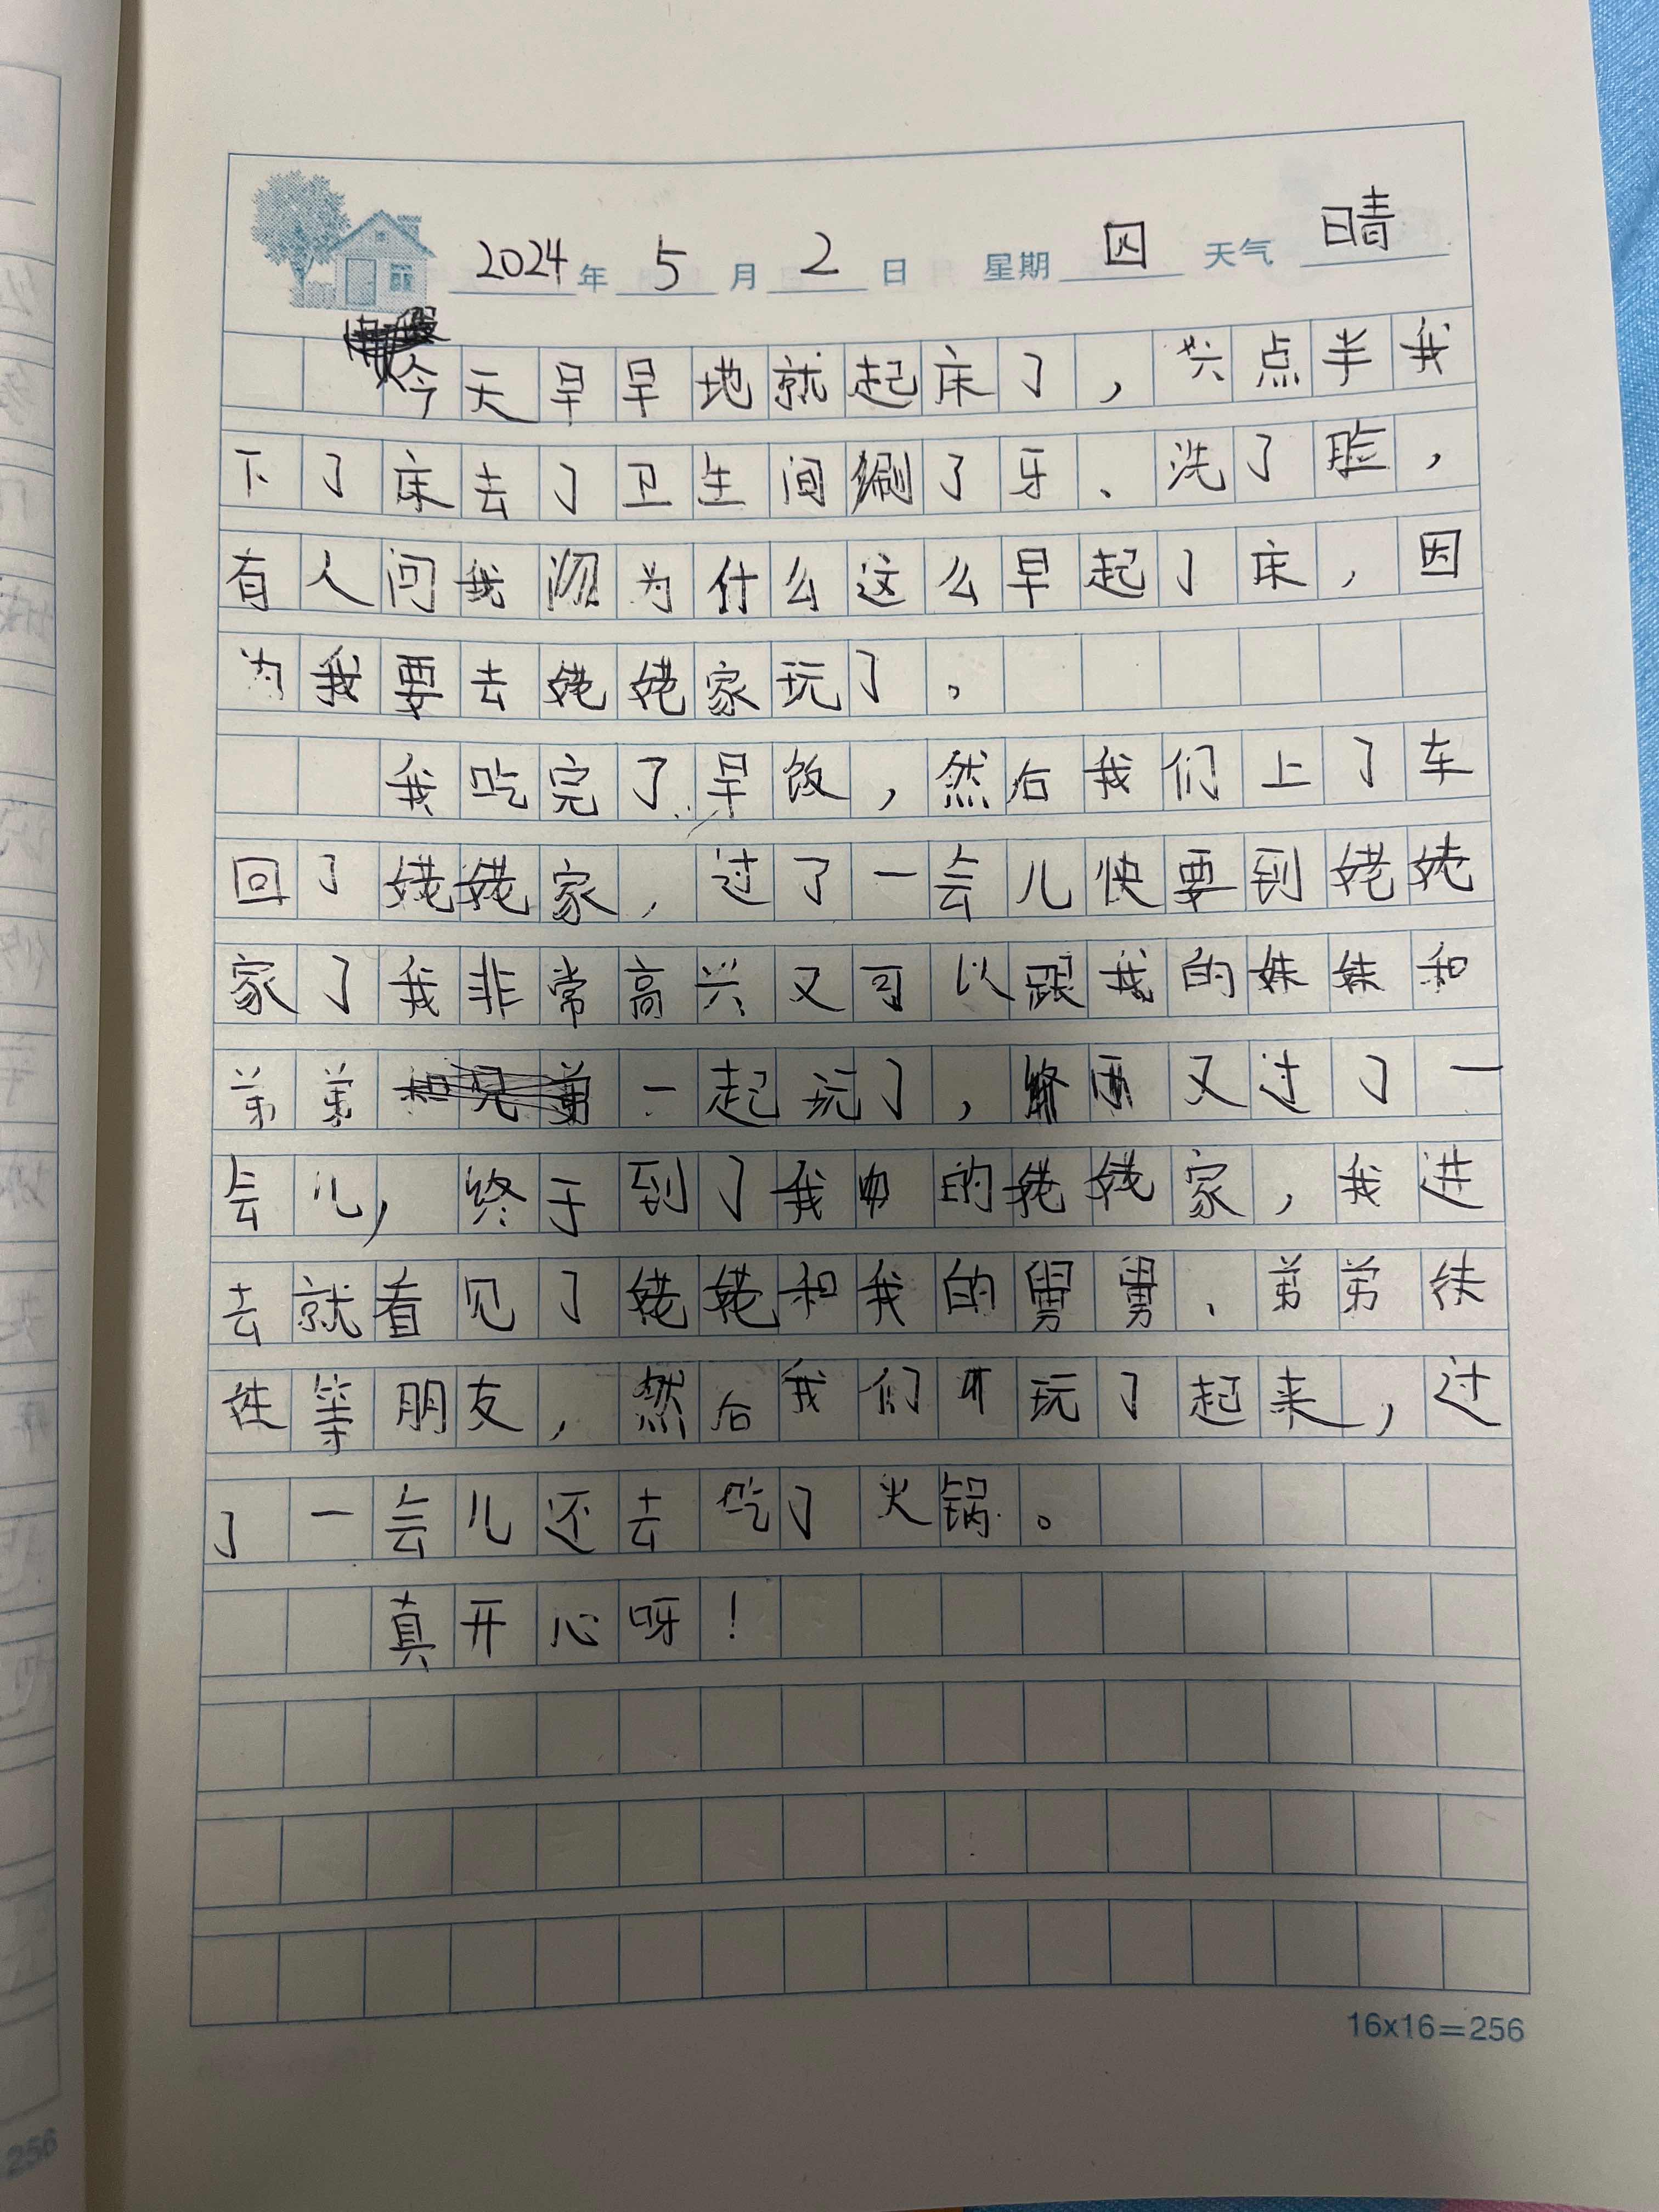 2024年 5月 2日 星期 四 天气 晴
今天早早地就起床了，六点半我
下了床去了卫生间刷了牙、洗了脸，
有人问我为什么这么早起了床，因
为我要去姥姥家玩了。
我吃完了早饭，然后我们上了车
回了姥姥家，过了一会儿快要到姥姥
家了我非常高兴又可以跟我的妹妹和
弟弟一起玩了，又过了一
会儿，终于到了我的姥姥家，我进
去就看见了姥姥和我的舅舅、弟弟妹
妹等朋友，然后我们玩了起来，过
了一会儿还去吃了火锅。
真开心呀！
16x16=256
256